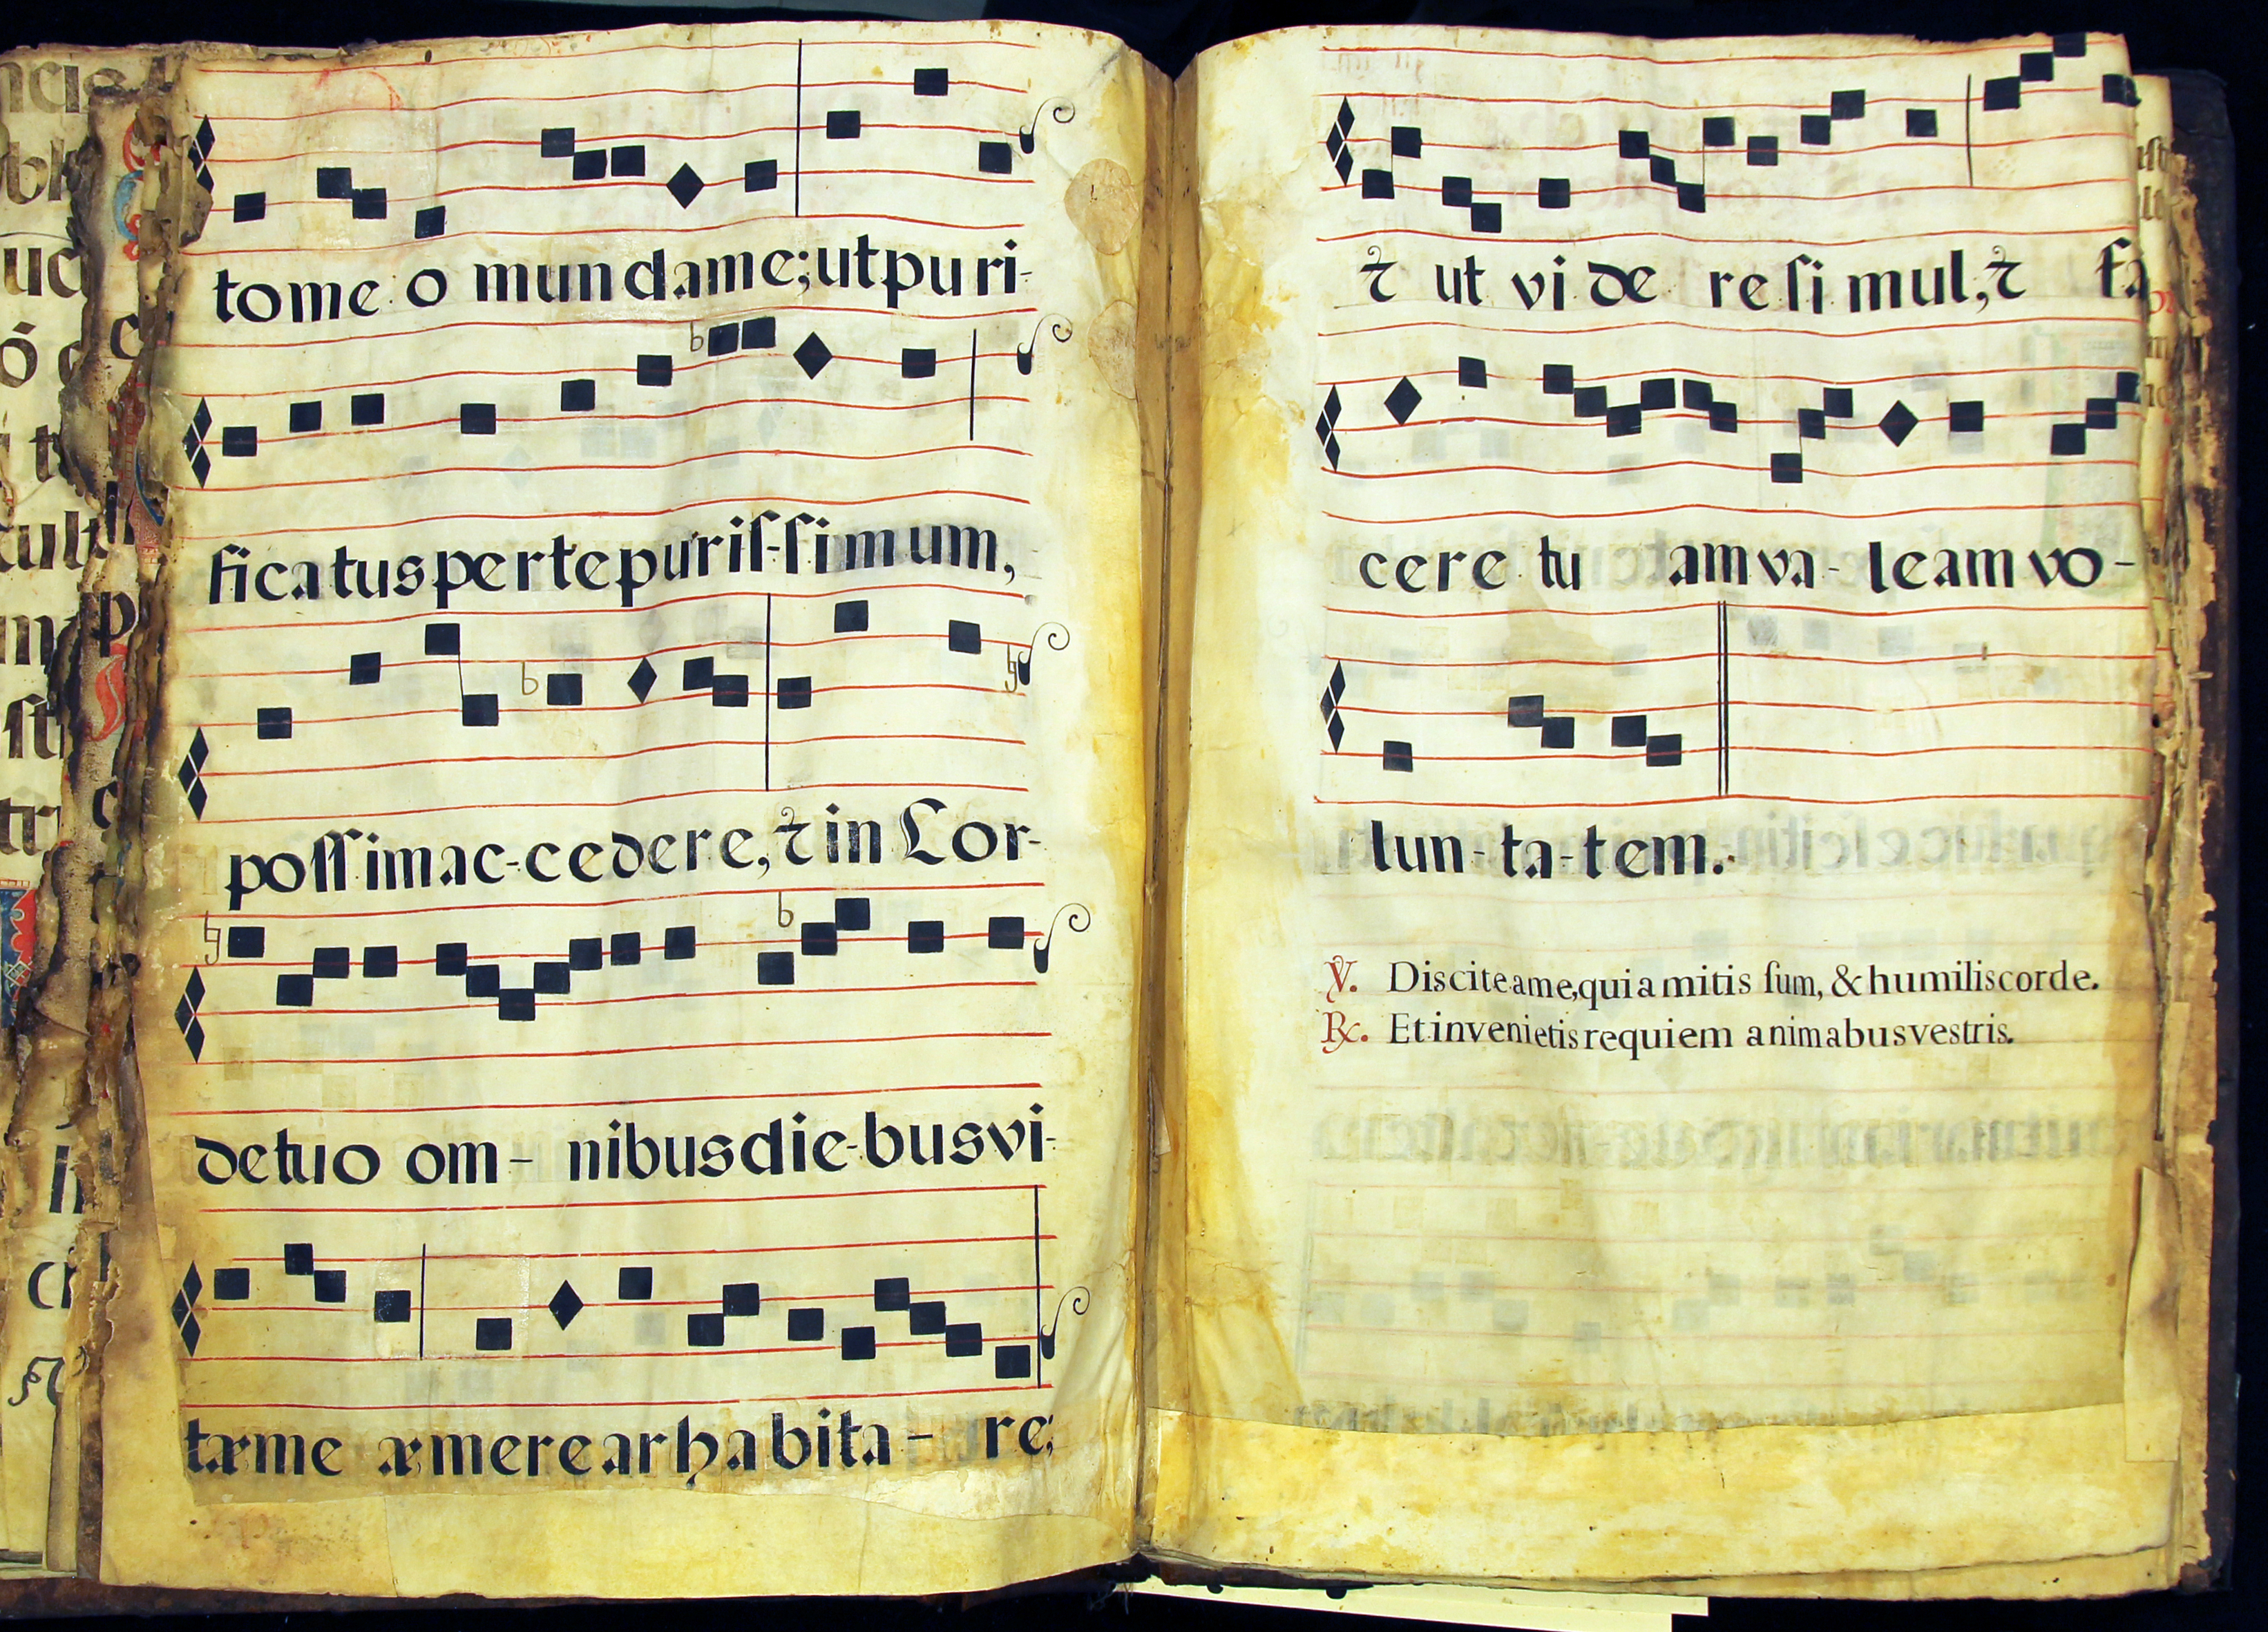 tome o mundame; utpuri-
ficatuspertepuriſ-ſimum,
poſſimac-cedere, ⁊ in Cor-
detuo om- nibusdie-busvi-
tæme æmerearhabita- re;
⁊ ut vi de re ſi mul, ⁊ fa
cere tu amva- leamvo-
lun-ta-tem.
℣. Disciteame, quiamitis ſum, & humiliscorde.
℟. Etinvenietisrequiem animabusvestris.